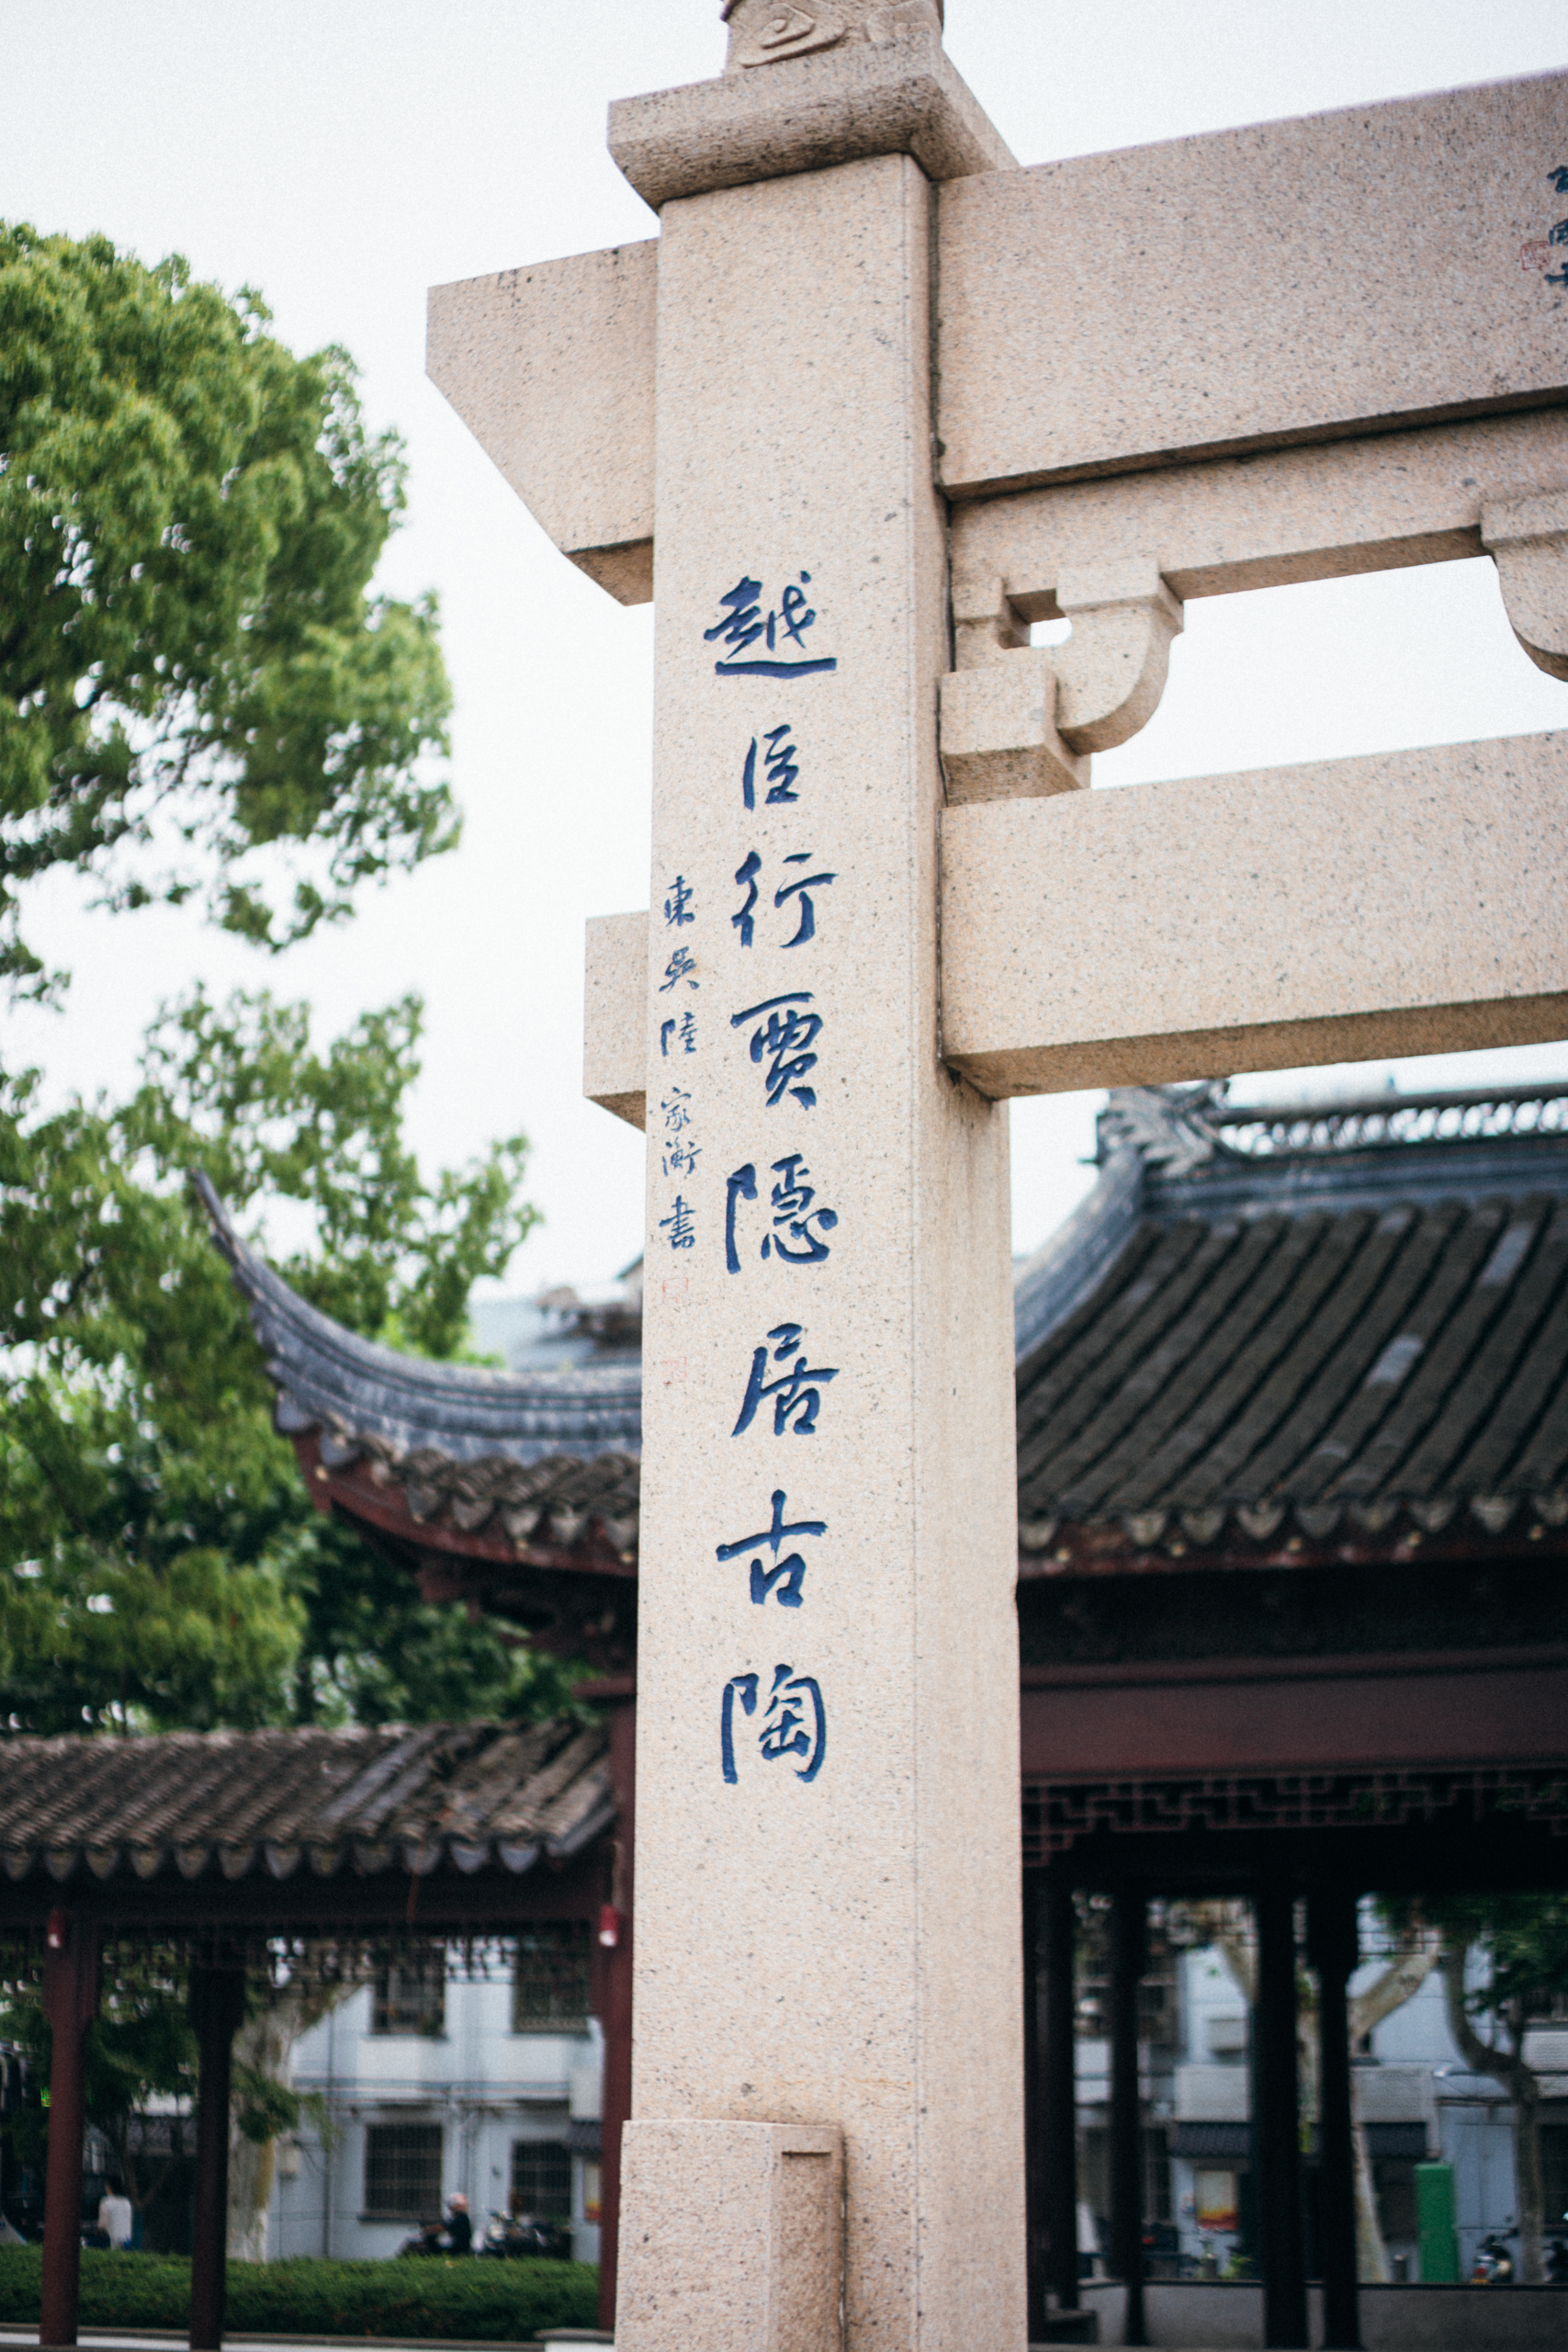 越臣行賈隱居古陶
東吳陸家衡書